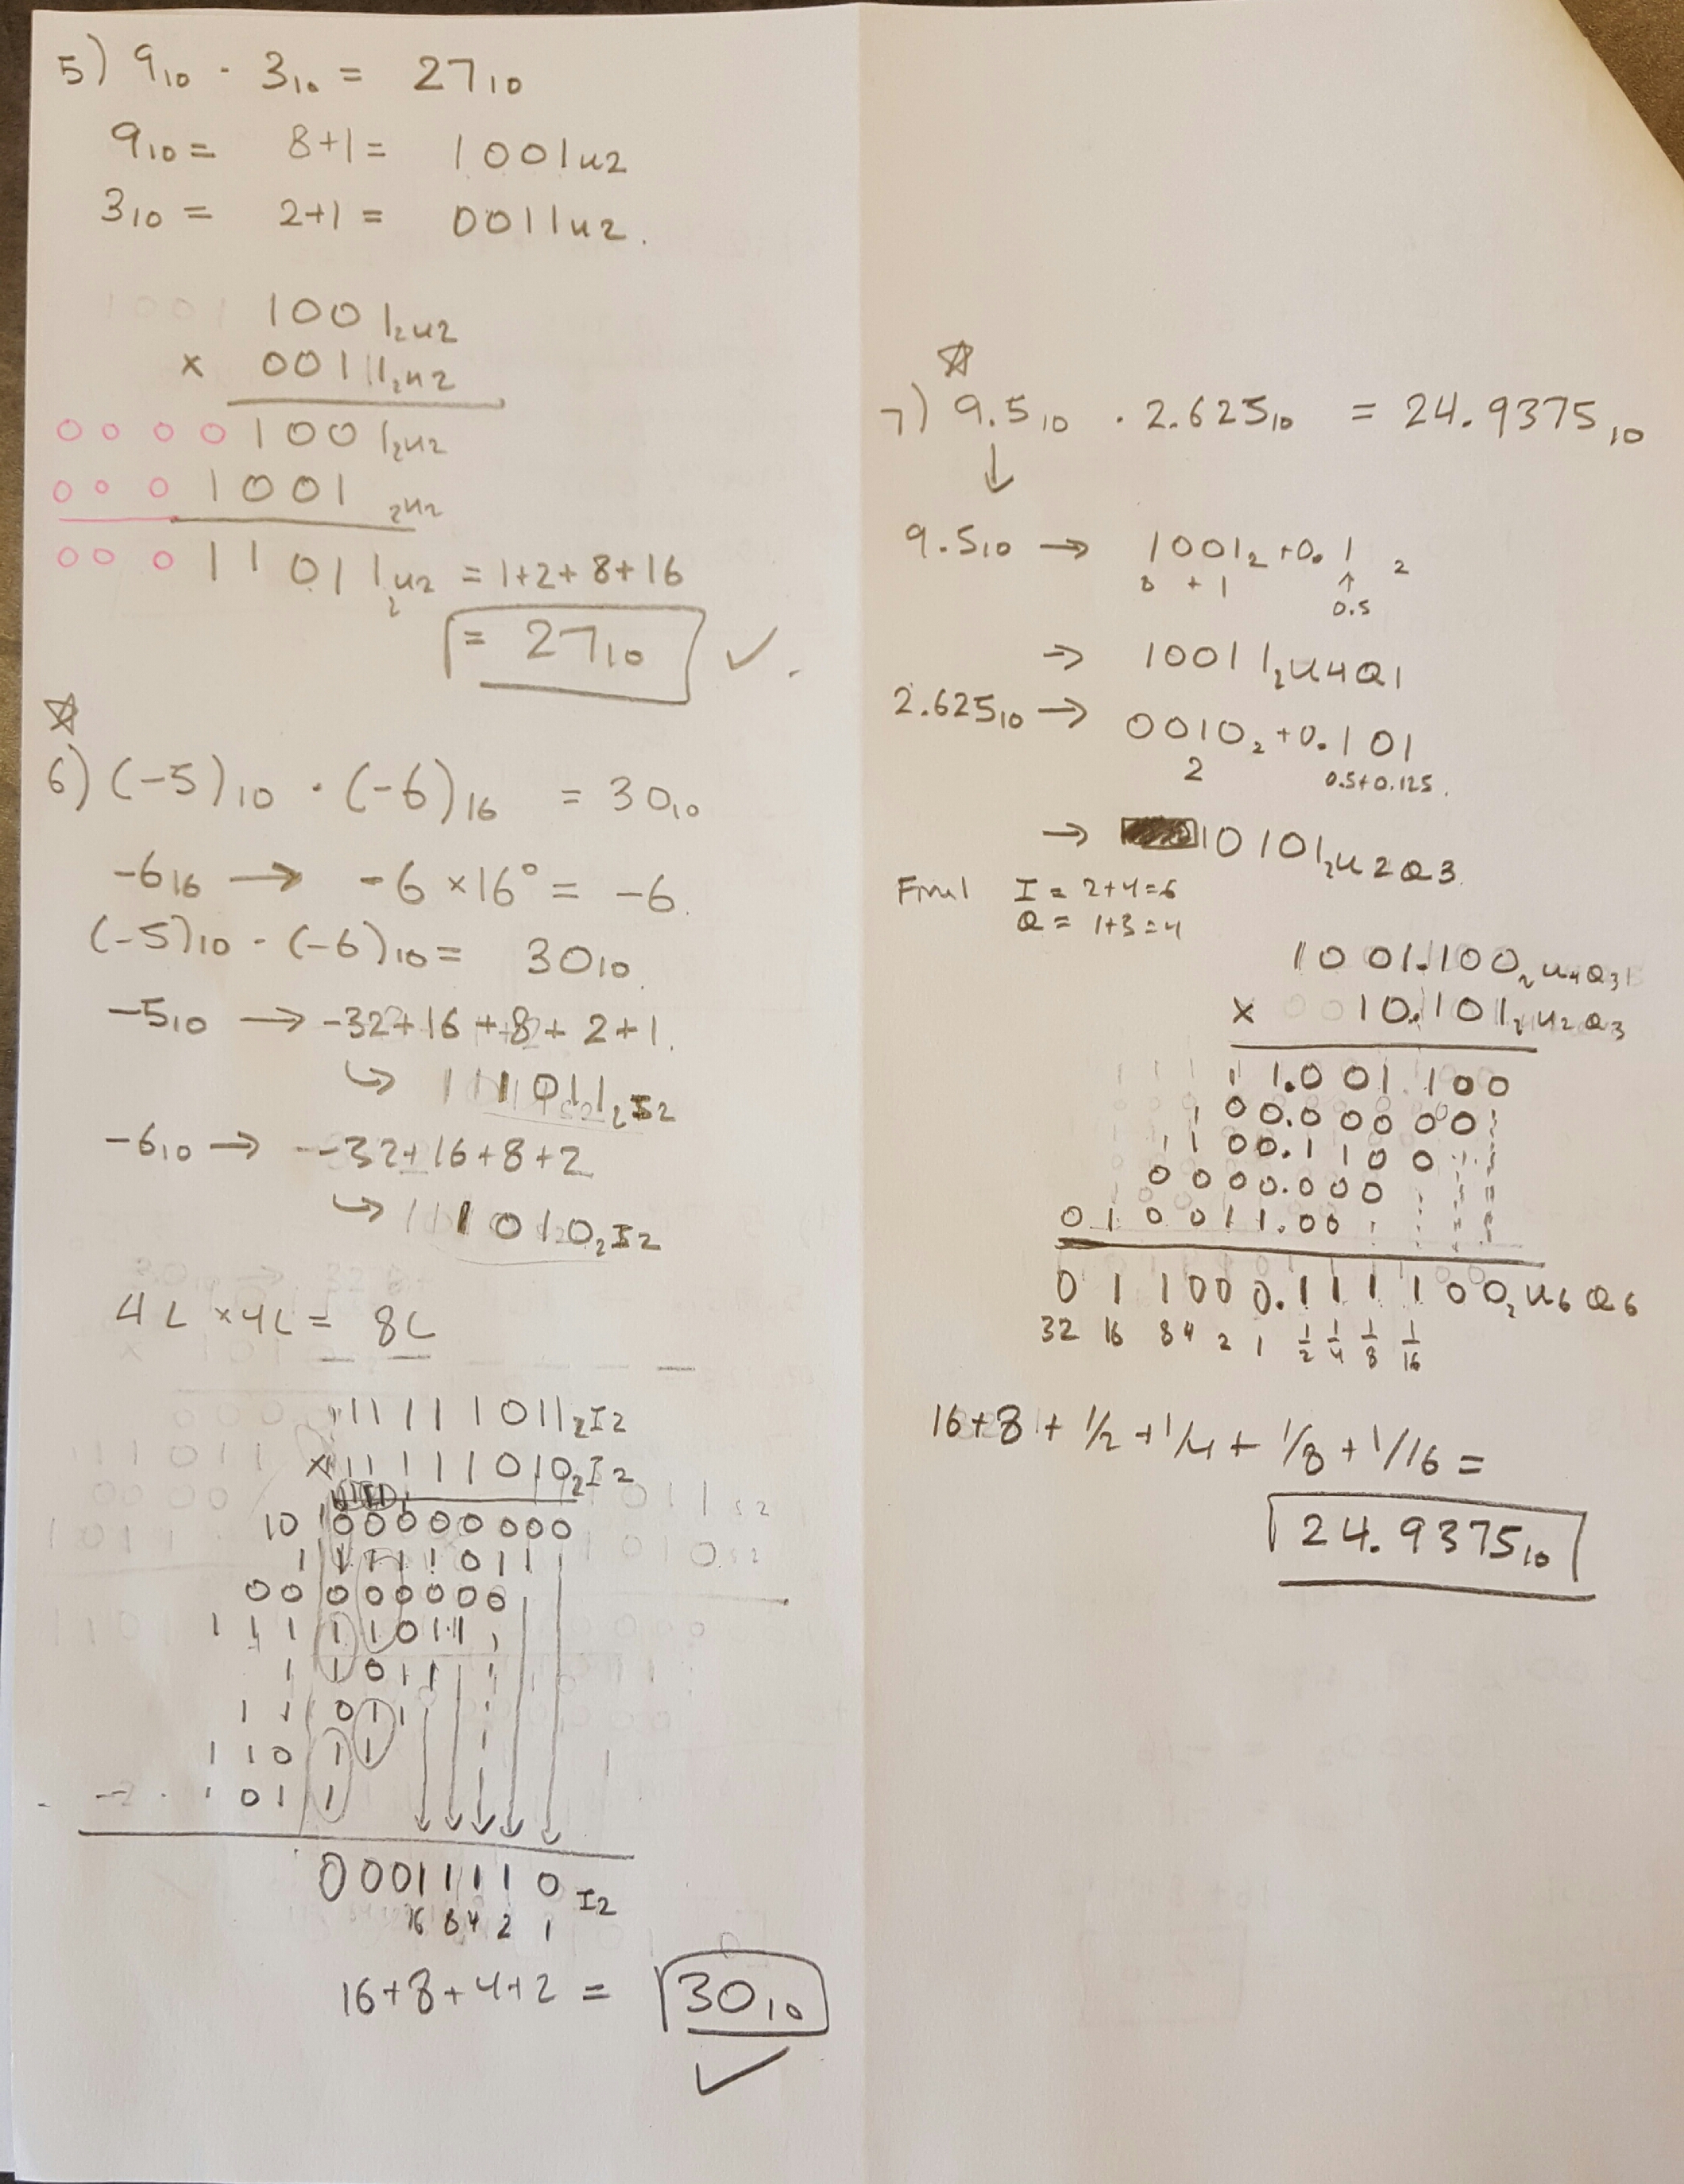 5) 9₁₀ · 3₁₀ = 27₁₀
9₁₀ = 8+1 = 1001u2
3₁₀ = 2+1 = 0011u2.
1001₂u2
x 0011₂u2
00001001₂u2
0001001 ₂u2
00011011₂u2 = 1+2+8+16
= 27₁₀ ✓.
☆
6) (-5)₁₀ · (-6)₁₆ = 30₁₀
-6₁₆ → -6 ×16⁰ = -6.
(-5)₁₀ - (-6)₁₀ = 30₁₀.
-5₁₀ → -32+16+8+2+1.
↳ 111011₂I2
-6₁₀ → -32+16+8+2
↳ 111010₂I2
4L ×4L = 8L
11111011₂I2
x 11111010₂I2
10 00000000
1111 1011
00 000000
111 11011
1 1011
11 011
110 11
01 1
00011110 I2
16 8 4 2 1
16+8+4+2 = 30₁₀
✓
☆
7) 9.5₁₀ · 2.625₁₀ = 24.9375₁₀
↓
9.5₁₀ → 1001₂+0.1 ₂
8 + 1 ↑
0.5
→ 10011₂u4Q1
2.625₁₀ → 0010₂+0.101
2 0.5+0.125.
→ 10101₂u2Q3
Final I = 2+4=6
Q = 1+3=4
1001.100₂u4Q3
x 10.101₂u2Q3
1 1.001 100
1 00.00000
1 100.1100
0000.000
010011.00
011000.111100₂u6Q6
32 16 8 4 2 1 1/2 1/4 1/8 1/16
16+8+1/2+1/4+1/8+1/16 =
24.9375₁₀